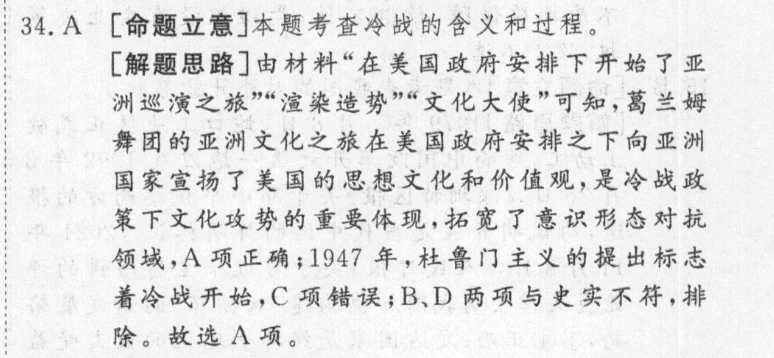 34. A ［命题立意］本题考查冷战的含义和过程。
［解题思路］由材料“在美国政府安排下开始了亚
洲巡演之旅”“渲染造势”“文化大使”可知，葛兰姆
舞团的亚洲文化之旅在美国政府安排之下向亚洲
国家宣扬了美国的思想文化和价值观，是冷战政
策下文化攻势的重要体现，拓宽了意识形态对抗
领域，A 项正确；1947 年，杜鲁门主义的提出标志
着冷战开始，C 项错误；B、D 两项与史实不符，排
除。故选 A 项。